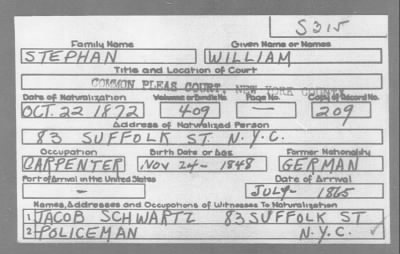 S315
Family Name Given Name or Names
STEPHAN WILLIAM
Title and Location of Court
COMMON PLEAS COURT, NEW YORK COUNTY
Date of Naturalization Volume or Bundle No. Page No. Copy of Record No.
OCT. 22 1872 409 — 209
Address of Naturalized Person
83 SUFFOLK ST. N.Y.C.
Occupation Birth Date or Age Former Nationality
CARPENTER NOV 24 - 1848 GERMAN
Port of Arrival in the United States Date of Arrival
- JULY - 1865
Names, Addresses and Occupations of Witnesses To Naturalization
1 JACOB SCHWARTZ 83 SUFFOLK ST
2 POLICEMAN N.Y.C.